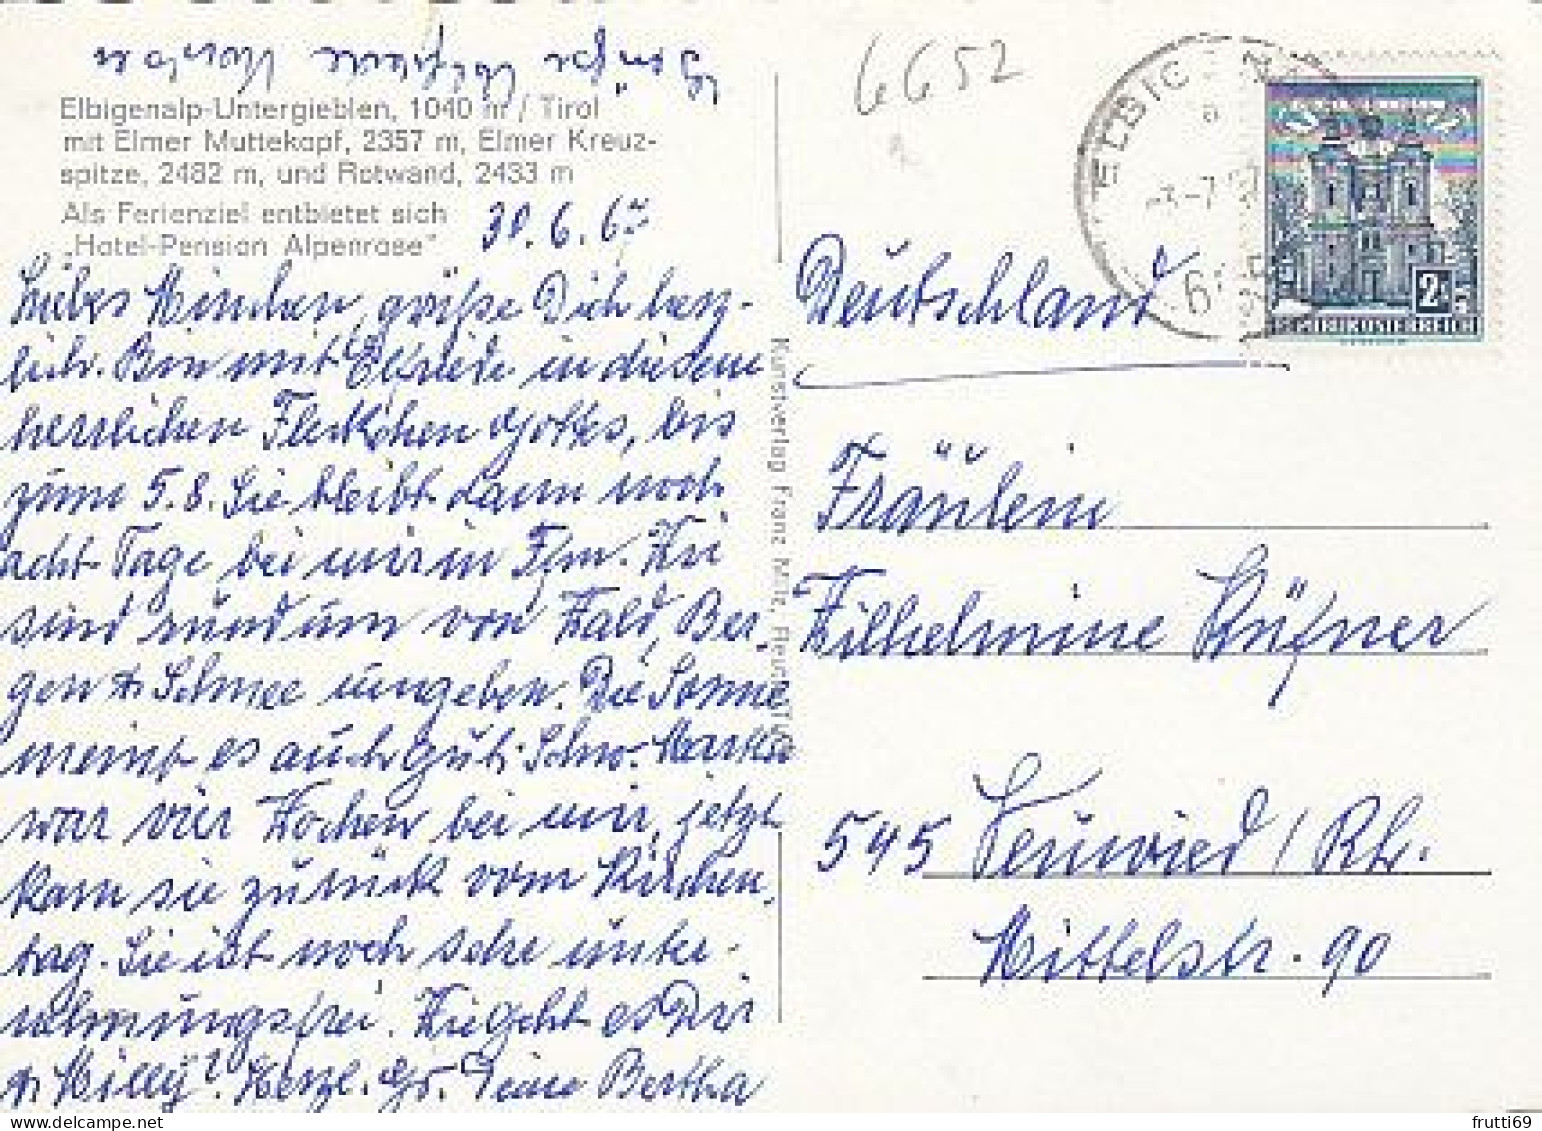 6652
Elbigenalp-Untergieblen, 1040 m / Tirol
mit Elmer Muttekopf, 2357 m, Elmer Kreuz-
spitze, 2482 m, und Rotwand, 2433 m
Als Ferienziel entbietet sich
„Hotel-Pension Alpenrose"
30.6.67
Liebes Minchen, grüße Dich herz-
lich. Bin mit Elfriede in diesem
herrlichen Fleckchen Gottes, bis
zum 5.8. Sie bleibt dann noch
acht Tage bei mir in Ffm. Wir
sind rundum von Wald, Ber-
gen + Schnee umgeben. Die Sonne
meint es auch gut. Schw. Marka
war vier Wochen bei mir, jetzt
kam sie zurück vom Kirchen-
tag. Sie ist noch sehr unter-
nehmungsfrei. Wie geht es Dir
+ Milly? Herzl. Gr. Deine Bertha
Kunstverlag Franz Milz, Reutte/Tirol
Deutschland
Fräulein
Wilhelmine Hüfner
545 Neuwied / Rh.
Mittelstr. 90
ELBIGE
2
REPUBLIK ÖSTERREICH
frutti69